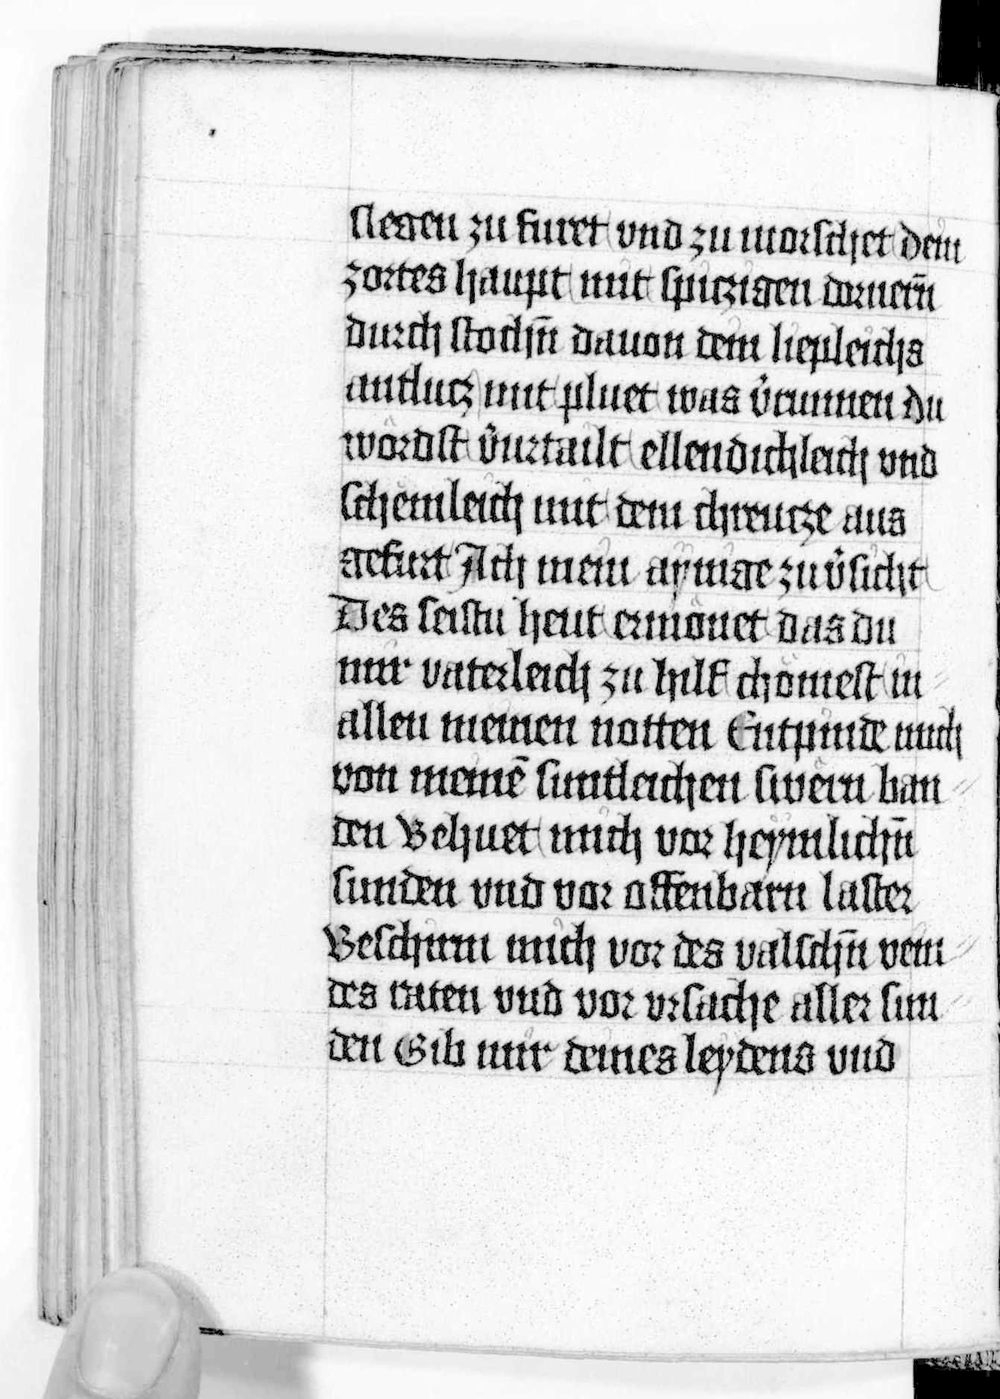 slegen zu furet vnd zu morschet dein
zortes haupt mit spiczigen dornern̄
durch stochn̄ dauon dein liepleichs
antlucz mit pluet was v̂runnen du
wördst v̂urtailt ellendichleich vnd
schemleich mit dem chreucze aus
gefurt Ach mein aÿnige zu v̂sicht
Des seistu heut ermönet das du
mir vaterleich zu hilf chömest in
allen meinen notten Entpinde mich
von meinē suntleichen swern ban
den Behuet mich vor heÿmlichn̄
sunden vnd vor offenbarn laster
Beschirm mich vor des valschn̄ vein
des raten vnd vor vrsache aller sun
den Gib mir deines leydens vnd